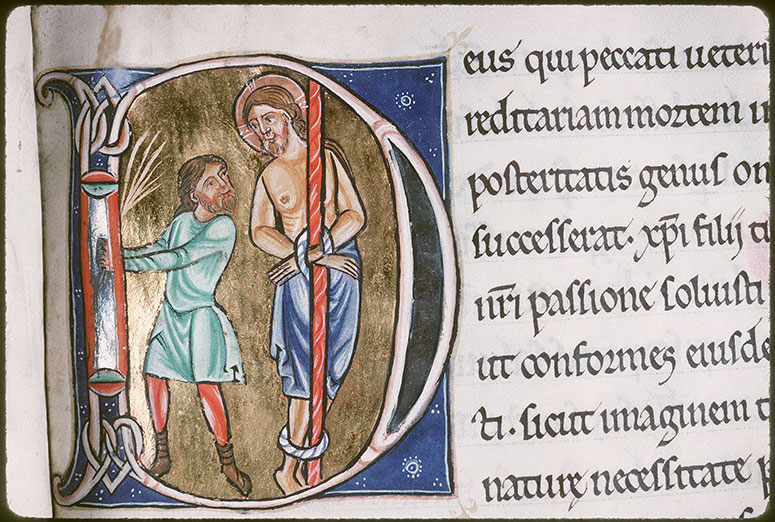 eus qui peccati ueteri
reditariam mortem i
posteritatis genus on
successerat. xp̄i filij t
nr̄i passione soluisti
ut conformes eiusde
ti. sicut imaginem t
naturę necessitate p